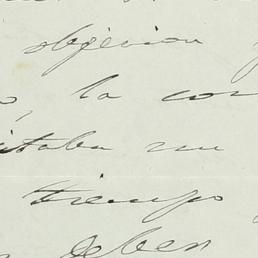 objecion
o, la con
itaba un
tiempo
deben